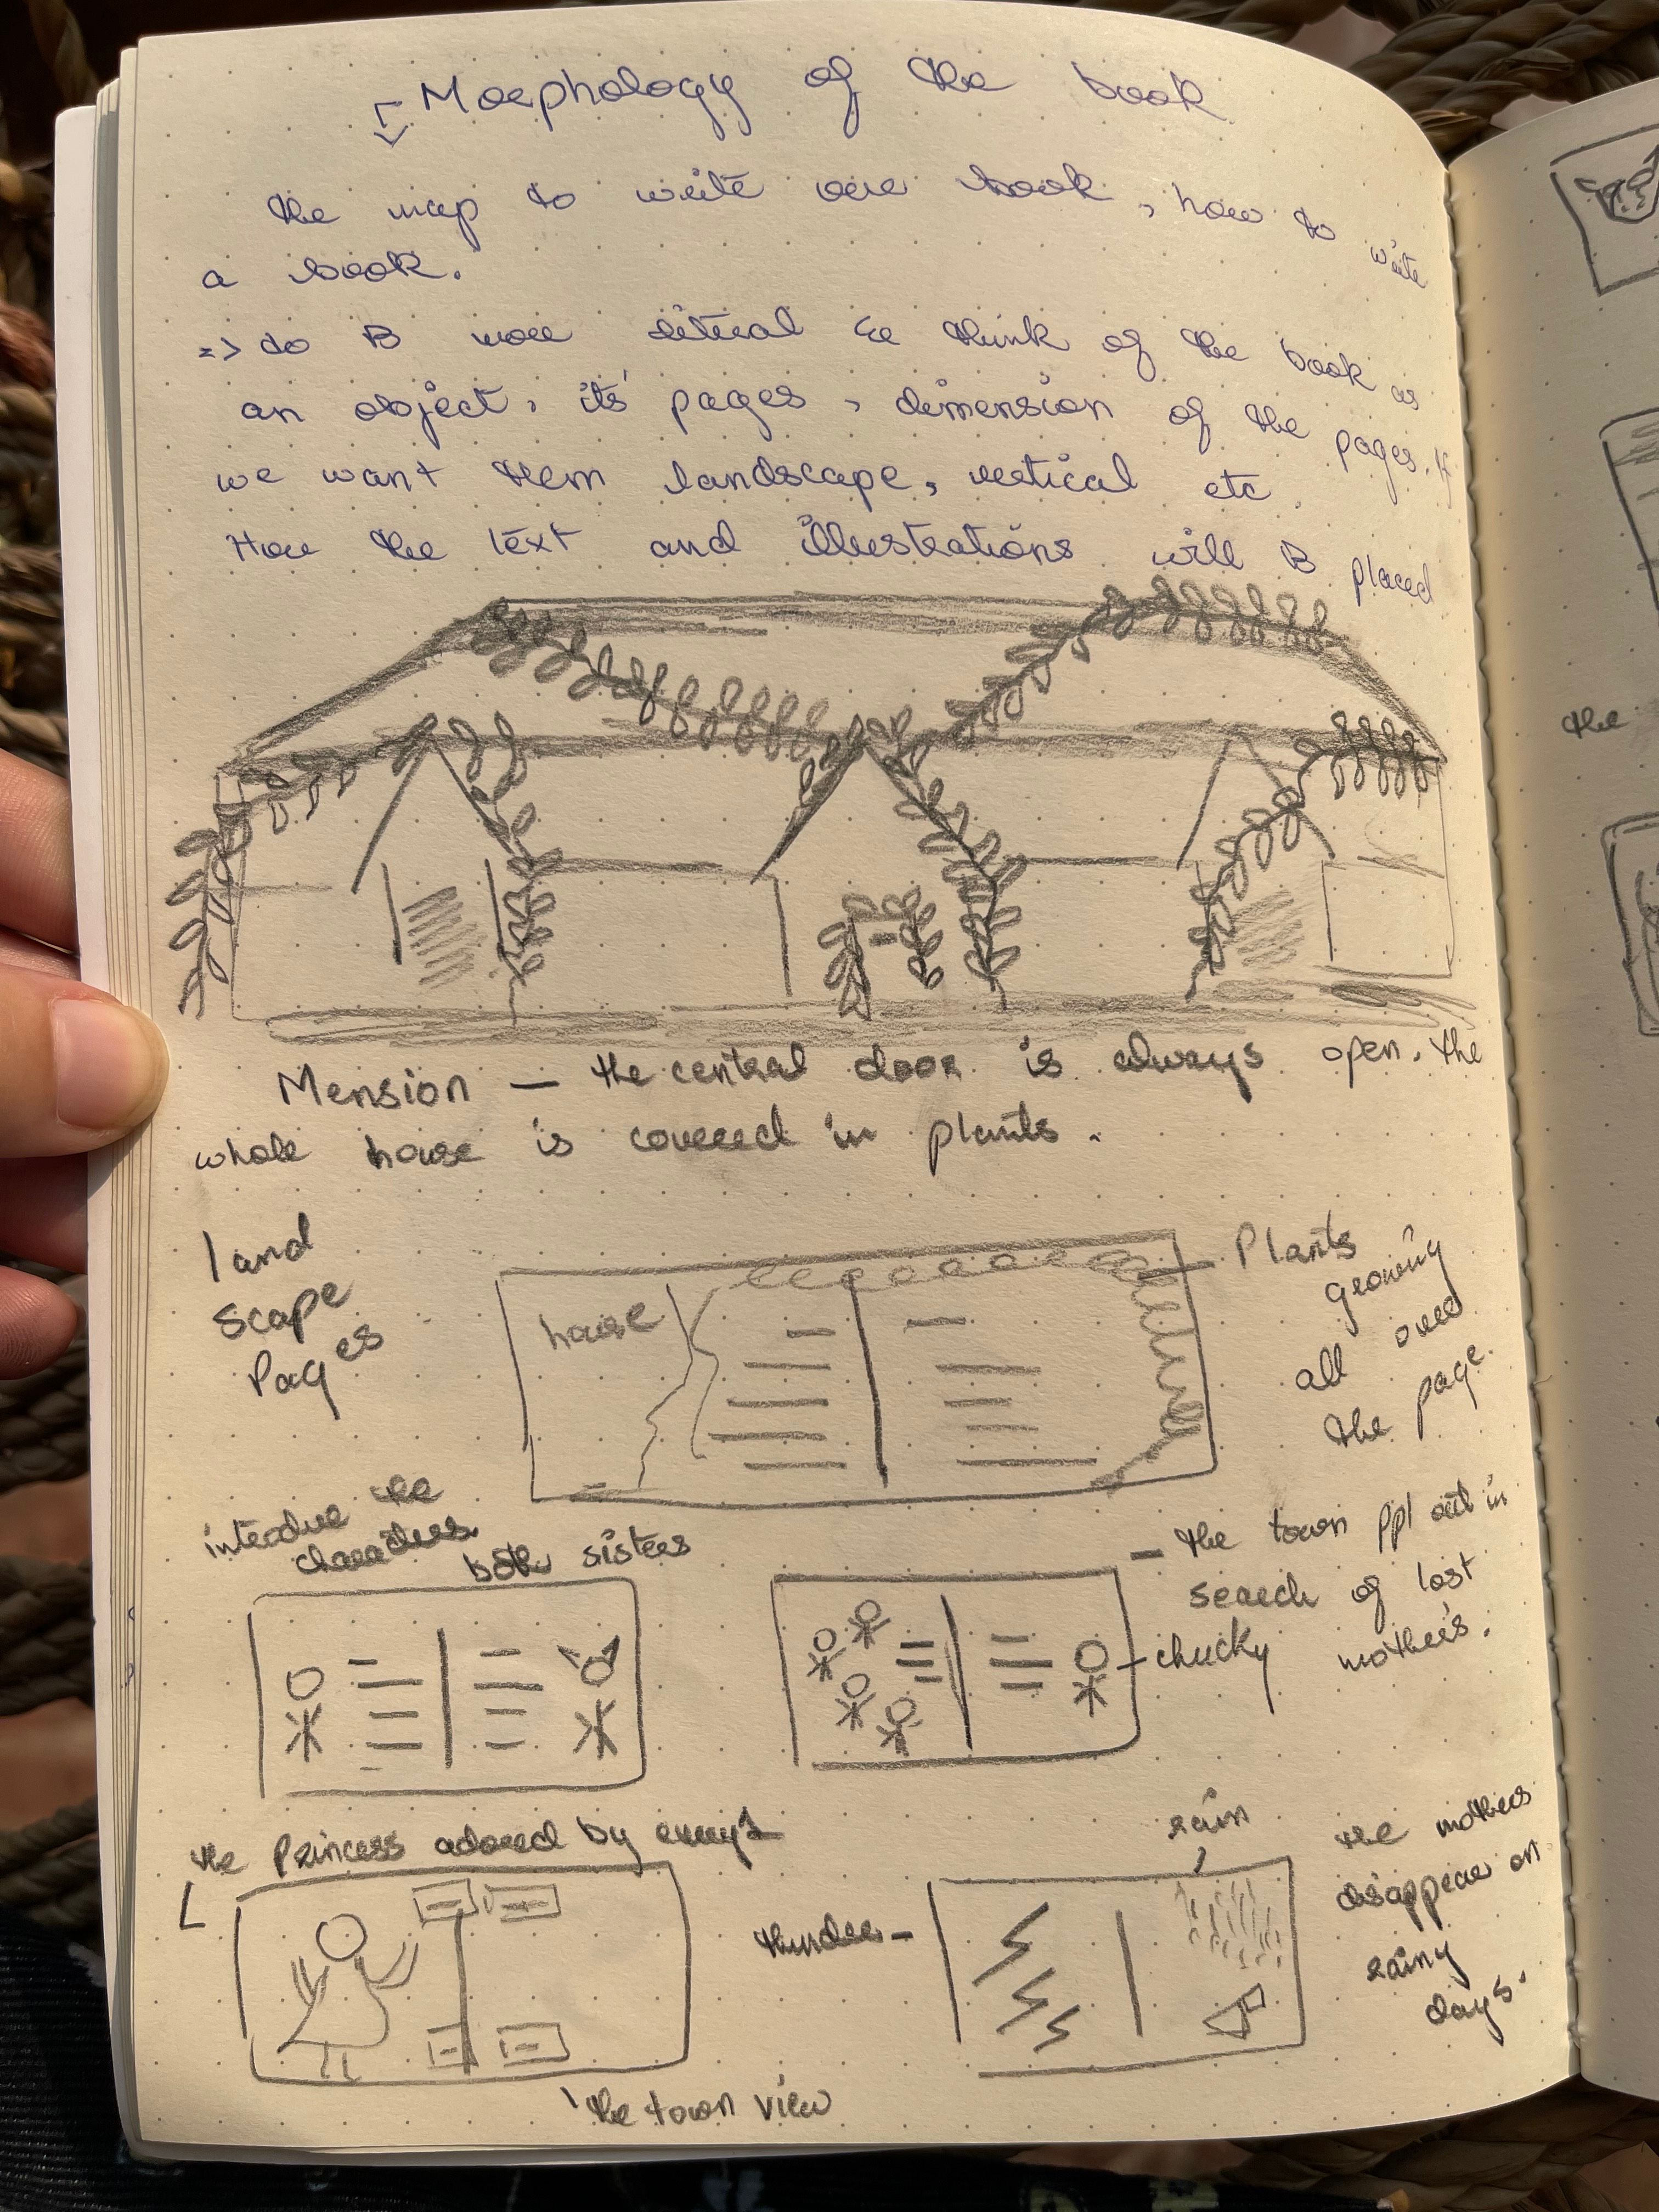 Morphology of the book
the map to write our book, how to write
a book.
=> to B more literal & think of the book as
an object, its' pages, dimension of the pages. If
we want them landscape, vertical etc.
How the text and illustrations will B placed
Mension — the central door is always open. the
whole house is covered in plants.
land
scape
Pages
house
Plants
growing
all over
the page.
introduce the
characters.
both sisters
- the town ppl out in
search of lost
mothers.
chucky
the Princess adored by every1
the town view
thunder -
rain
the mothers
disappear on
rainy
days.
the